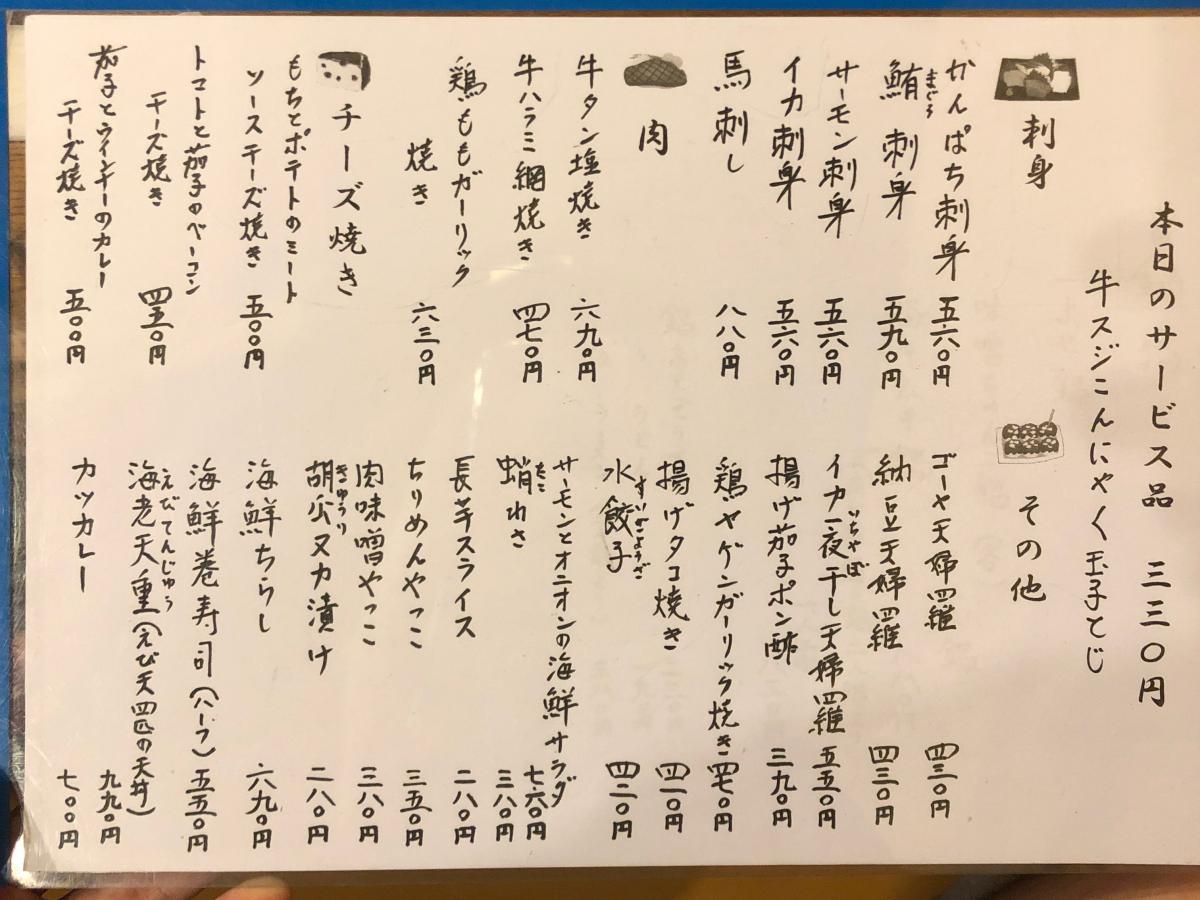 本日のサービス品 三三〇円
牛スジこんにゃく玉子とじ
刺身
かんぱち刺身 五六〇円
鮪刺身 五九〇円
まぐろ
サーモン刺身 五六〇円
イカ刺身 五六〇円
馬刺し 八八〇円
肉
牛タン塩焼き 六九〇円
牛ハラミ網焼き 四七〇円
鶏ももガーリック
焼き 六三〇円
チーズ焼き
もちとポテトのミート
ソースチーズ焼き 五〇〇円
トマトと茄子のベーコン
チーズ焼き 四五〇円
茄子とウインナーのカレー
チーズ焼き 五〇〇円
その他
ゴーヤ天婦羅 四三〇円
納豆天婦羅 四三〇円
イカ一夜干し天婦羅 五五〇円
いちやぼ
揚げ茄子ポン酢 三九〇円
鶏ヤゲンガーリック焼き 四七〇円
揚げタコ焼き 四一〇円
水餃子 四二〇円
すいぎょうざ
サーモンとオニオンの海鮮サラダ 七六〇円
蛸わさ 三八〇円
たこ
長芋スライス 二八〇円
ちりめんやっこ 三五〇円
肉味噌やっこ 三八〇円
胡瓜ヌカ漬け 二八〇円
きゅうり
海鮮ちらし 六九〇円
海鮮巻寿司(ハーフ) 五五〇円
海老天重(えび天四匹の天丼) 九九〇円
えびてんじゅう
カツカレー 七〇〇円